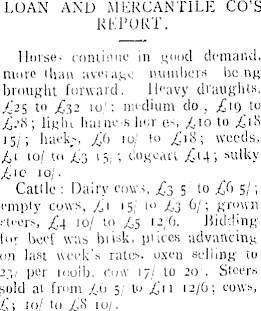 LOAN AND MERCANTILE CO'S
REPORT.
Horses continue in good demand,
more than average numbers being
brought forward. Heavy draughts,
£25 to £32 10/; medium do, £19 to
£28; light harness horses, £10 to £18
15/; hacks, £6 10/ to £18; weeds,
£1 10/ to £3 15/; dogcart £14; sulky
£10 10/.
Cattle: Dairy cows, £3 5 to £6 5/;
empty cows, £1 15/ to £3 6/; grown
steers, £4 10/ to £5 12/6. Bidding
for beef was brisk, prices advancing
on last week's rates, oxen selling to
per 100lb, cow 17/ to 20/. Steers
sold at from £6 5/ to £11 12/6; cows,
10/ to £8 10/.